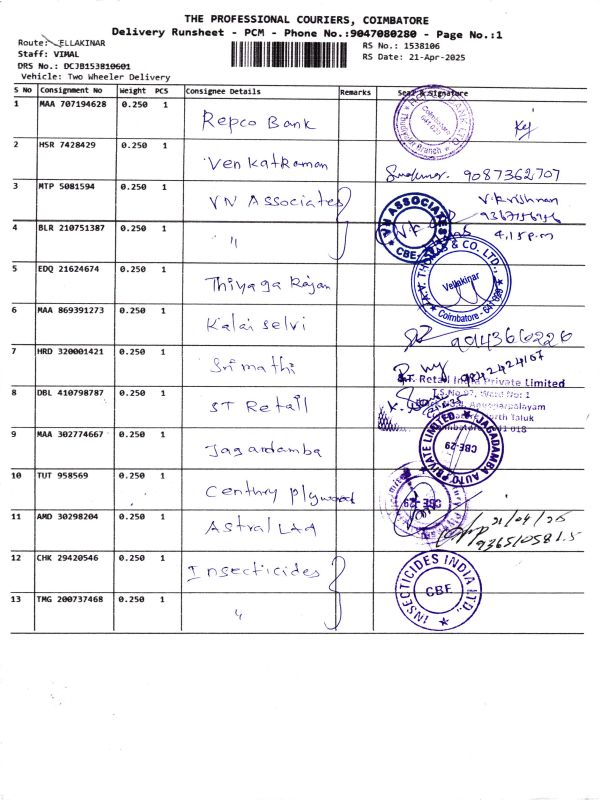 THE PROFESSIONAL COURIERS, COIMBATORE
Delivery Runsheet - PCM - Phone No.:9047080280 - Page No.:1
Route: VELLAKINAR
RS No.: 1538106
Staff: VIMAL
RS Date: 21-Apr-2025
DRS No.: DCJB153810601
Vehicle: Two Wheeler Delivery
S No Consignment No Weight PCS Consignee Details Remarks Seal & Signature
1 MAA 707194628 0.250 1 Repco Bank
Coimbatore 641 029
Branch
2 HSR 7428429 0.250 1 Venkatraman 9087362707
3 MTP 5081594 0.250 1 VN Associates V.Krishnan
VN ASSOCIATES CBE.
4 BLR 210751387 0.250 1 " 4.15 p.m
5 EDQ 21624674 0.250 1 Thiyagarajan
A.V. THOMAS & CO. LTD., Vellakinar Coimbatore - 641 029
6 MAA 869391273 0.250 1 Kalaiselvi 9043660226
7 HRD 320001421 0.250 1 Srimathi 9842424167
S.T. Retail India Private Limited
8 DBL 410798787 0.250 1 ST Retail
T.S.No 92, Ward No: 1
North Taluk
9 MAA 302774667 0.250 1 Jagardamba
JAGADAMBA AUTO PRIVATE LIMITED CBE-29
10 TUT 958569 0.250 1 Century plywood
CBE-29
11 AMD 30298204 0.250 1 Astral LAQ 21/04/25
9365105815
12 CHK 29420546 0.250 1 Insecticides
INSECTICIDES INDIA LTD., CBE.
13 TMG 200737468 0.250 1 "